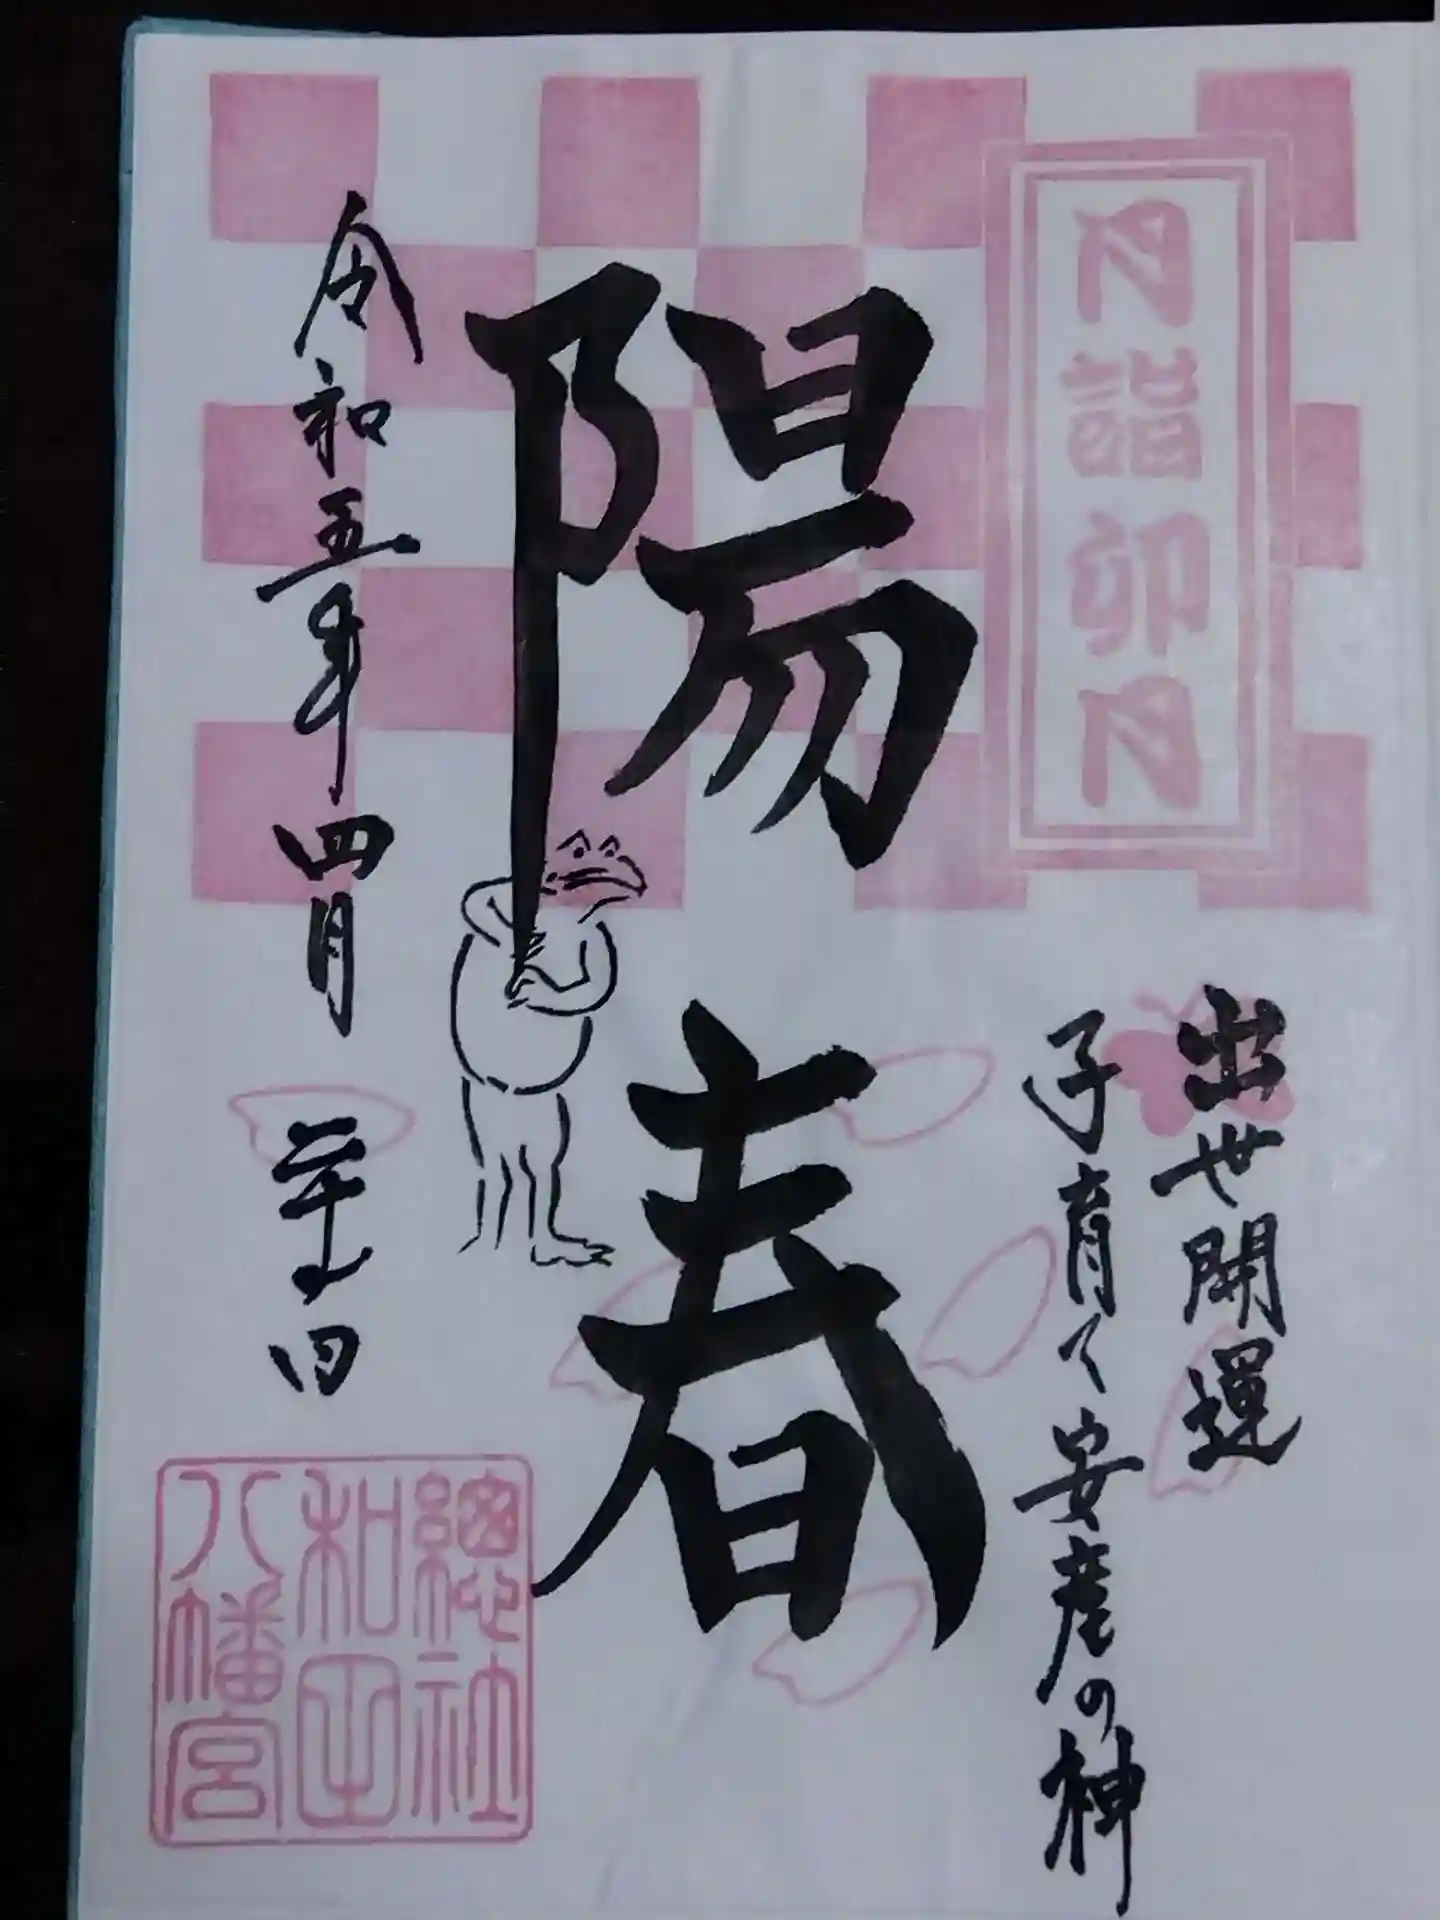 月詣卯月
出世開運
子育て安産の神
陽春
令和五年四月二十日
總社
和田
八幡宮